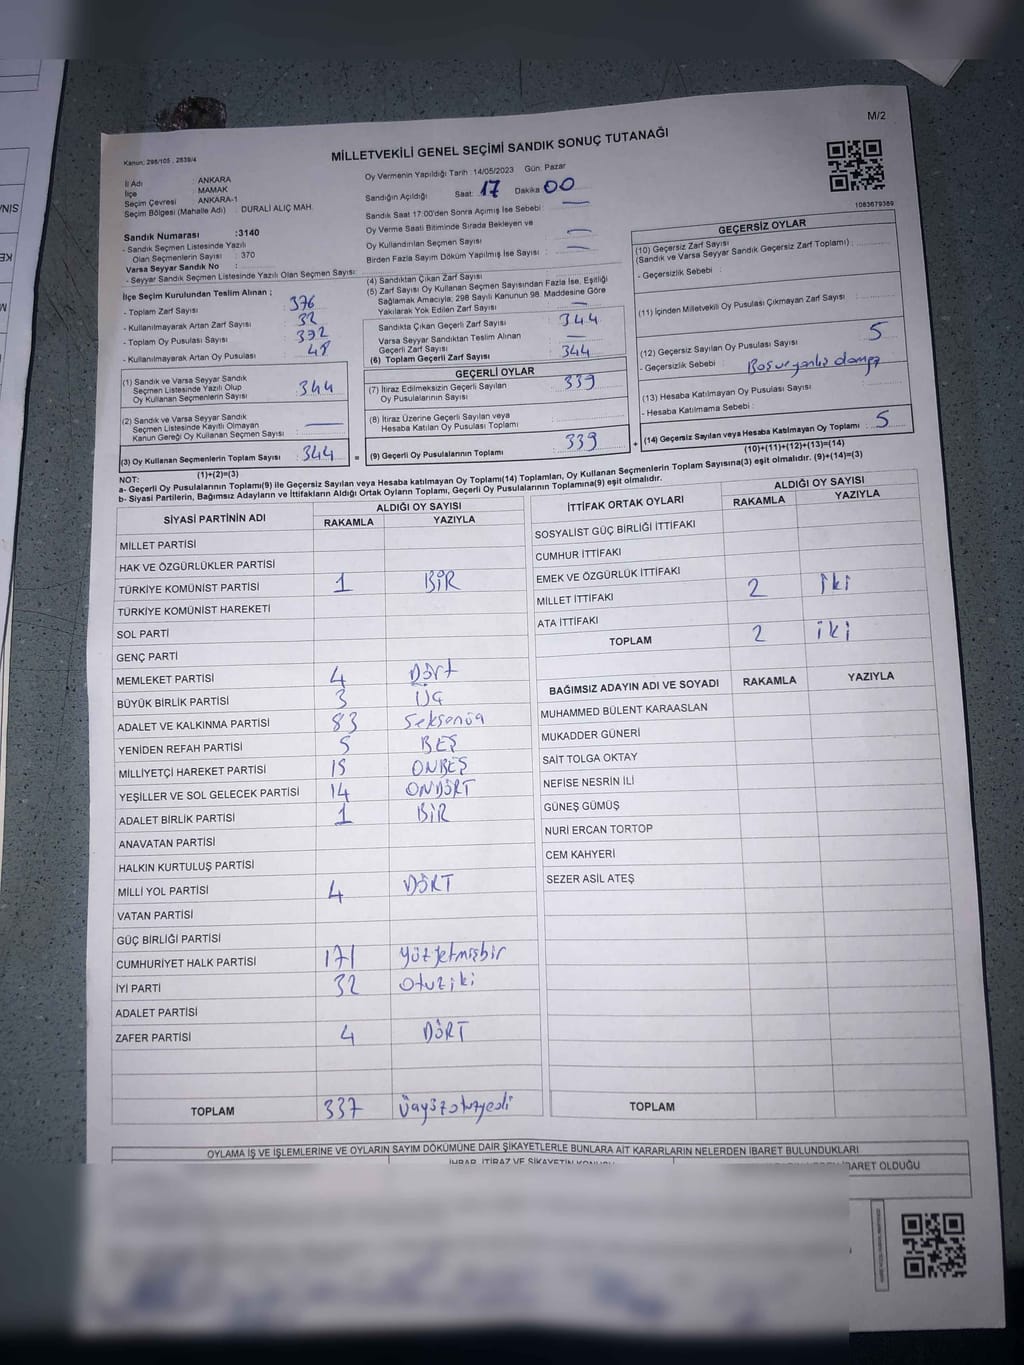 M/2
Kanun: 298/105 , 2839/4
MİLLETVEKİLİ GENEL SEÇİMİ SANDIK SONUÇ TUTANAĞI
1083679389
İl Adı : ANKARA
İlçe : MAMAK
Seçim Çevresi : ANKARA-1
Seçim Bölgesi (Mahalle Adı) : DURALİ ALIÇ MAH.
Sandık Numarası :3140
- Sandık Seçmen Listesinde Yazılı
Olan Seçmenlerin Sayısı : 370
Varsa Seyyar Sandık No :
- Seyyar Sandık Seçmen Listesinde Yazılı Olan Seçmen Sayısı:
İlçe Seçim Kurulundan Teslim Alınan ;
- Toplam Zarf Sayısı : 376
- Kullanılmayarak Artan Zarf Sayısı : 32
- Toplam Oy Pusulası Sayısı : 392
- Kullanılmayarak Artan Oy Pusulası : 48
(1) Sandık ve Varsa Seyyar Sandık
Seçmen Listesinde Yazılı Olup
Oy Kullanan Seçmenlerin Sayısı : 344
(2) Sandık ve Varsa Seyyar Sandık
Seçmen Listesinde Kayıtlı Olmayan
Kanun Gereği Oy Kullanan Seçmen Sayısı : —
(3) Oy Kullanan Seçmenlerin Toplam Sayısı : 344
(1)+(2)=(3)
Oy Vermenin Yapıldığı Tarih :14/05/2023 Gün: Pazar
Sandığın Açıldığı Saat: 17 Dakika 00
Sandık Saat 17:00'den Sonra Açımış İse Sebebi : —
Oy Verme Saati Bitiminde Sırada Bekleyen ve
Oy Kullandırılan Seçmen Sayısı : —
Birden Fazla Sayım Döküm Yapılmış İse Sayısı : —
(4) Sandıktan Çıkan Zarf Sayısı :
(5) Zarf Sayısı Oy Kullanan Seçmen Sayısından Fazla İse, Eşitliği
Sağlamak Amacıyla; 298 Sayılı Kanunun 98. Maddesine Göre
Yakılarak Yok Edilen Zarf Sayısı : —
Sandıkta Çıkan Geçerli Zarf Sayısı : 344
Varsa Seyyar Sandıktan Teslim Alınan
Geçerli Zarf Sayısı : —
(6) Toplam Geçerli Zarf Sayısı : 344
GEÇERLİ OYLAR
(7) İtiraz Edilmeksizin Geçerli Sayılan
Oy Pusulalarının Sayısı : 339
(8) İtiraz Üzerine Geçerli Sayılan veya
Hesaba Katılan Oy Pusulası Toplamı :
= (9) Geçerli Oy Pusulalarının Toplamı : 339
GEÇERSİZ OYLAR
(10) Geçersiz Zarf Sayısı
(Sandık ve Varsa Sandık Geçersiz Zarf Toplamı) :
- Geçersizlik Sebebi :
(11) İçinden Milletvekili Oy Pusulası Çıkmayan Zarf Sayısı :
(12) Geçersiz Sayılan Oy Pusulası Sayısı : 5
- Geçersizlik Sebebi :
(13) Hesaba Katılmayan Oy Pusulası Sayısı :
- Hesaba Katılmama Sebebi :
+ (14) Geçersiz Sayılan veya Hesaba Katılmayan Oy Toplamı : 5
(10)+(11)+(12)+(13)=(14)
NOT:
a- Geçerli Oy Pusulalarının Toplamı(9) ile Geçersiz Sayılan veya Hesaba katılmayan Oy Toplamı(14) Toplamları, Oy Kullanan Seçmenlerin Toplam Sayısına(3) eşit olmalıdır. (9)+(14)=(3)
b- Siyasi Partilerin, Bağımsız Adayların ve İttifakların Aldığı Ortak Oyların Toplamı, Geçerli Oy Pusulalarının Toplamına(9) eşit olmalıdır.
SİYASİ PARTİNİN ADI ALDIĞI OY SAYISI
RAKAMLA YAZIYLA
MİLLET PARTİSİ
HAK VE ÖZGÜRLÜKLER PARTİSİ
TÜRKİYE KOMÜNİST PARTİSİ 1 BİR
TÜRKİYE KOMÜNİST HAREKETİ
SOL PARTİ
GENÇ PARTİ
MEMLEKET PARTİSİ 4 Dört
BÜYÜK BİRLİK PARTİSİ 3 ÜÇ
ADALET VE KALKINMA PARTİSİ 83 Seksenüç
YENİDEN REFAH PARTİSİ 5 BEŞ
MİLLİYETÇİ HAREKET PARTİSİ 15 ONBEŞ
YEŞİLLER VE SOL GELECEK PARTİSİ 14 ONDÖRT
ADALET BİRLİK PARTİSİ 1 BİR
ANAVATAN PARTİSİ
HALKIN KURTULUŞ PARTİSİ
MİLLİ YOL PARTİSİ 4 DÖRT
VATAN PARTİSİ
GÜÇ BİRLİĞİ PARTİSİ
CUMHURİYET HALK PARTİSİ 171 yüzyetmişbir
İYİ PARTİ 32 otuziki
ADALET PARTİSİ
ZAFER PARTİSİ 4 DÖRT
TOPLAM 337 üçyüzotuzyedi
İTTİFAK ORTAK OYLARI ALDIĞI OY SAYISI
RAKAMLA YAZIYLA
SOSYALİST GÜÇ BİRLİĞİ İTTİFAKI
CUMHUR İTTİFAKI
EMEK VE ÖZGÜRLÜK İTTİFAKI
MİLLET İTTİFAKI 2 iki
ATA İTTİFAKI
TOPLAM 2 iki
BAĞIMSIZ ADAYIN ADI VE SOYADI RAKAMLA YAZIYLA
MUHAMMED BÜLENT KARAASLAN
MUKADDER GÜNERİ
SAİT TOLGA OKTAY
NEFİSE NESRİN İLİ
GÜNEŞ GÜMÜŞ
NURİ ERCAN TORTOP
CEM KAHYERİ
SEZER ASİL ATEŞ
TOPLAM
OYLAMA İŞ VE İŞLEMLERİNE VE OYLARIN SAYIM DÖKÜMÜNE DAİR ŞİKAYETLERLE BUNLARA AİT KARARLARIN NELERDEN İBARET BULUNDUKLARI
İHBAR, İTİRAZ VE ŞİKAYETİN KONUSU BARET OLDUĞU